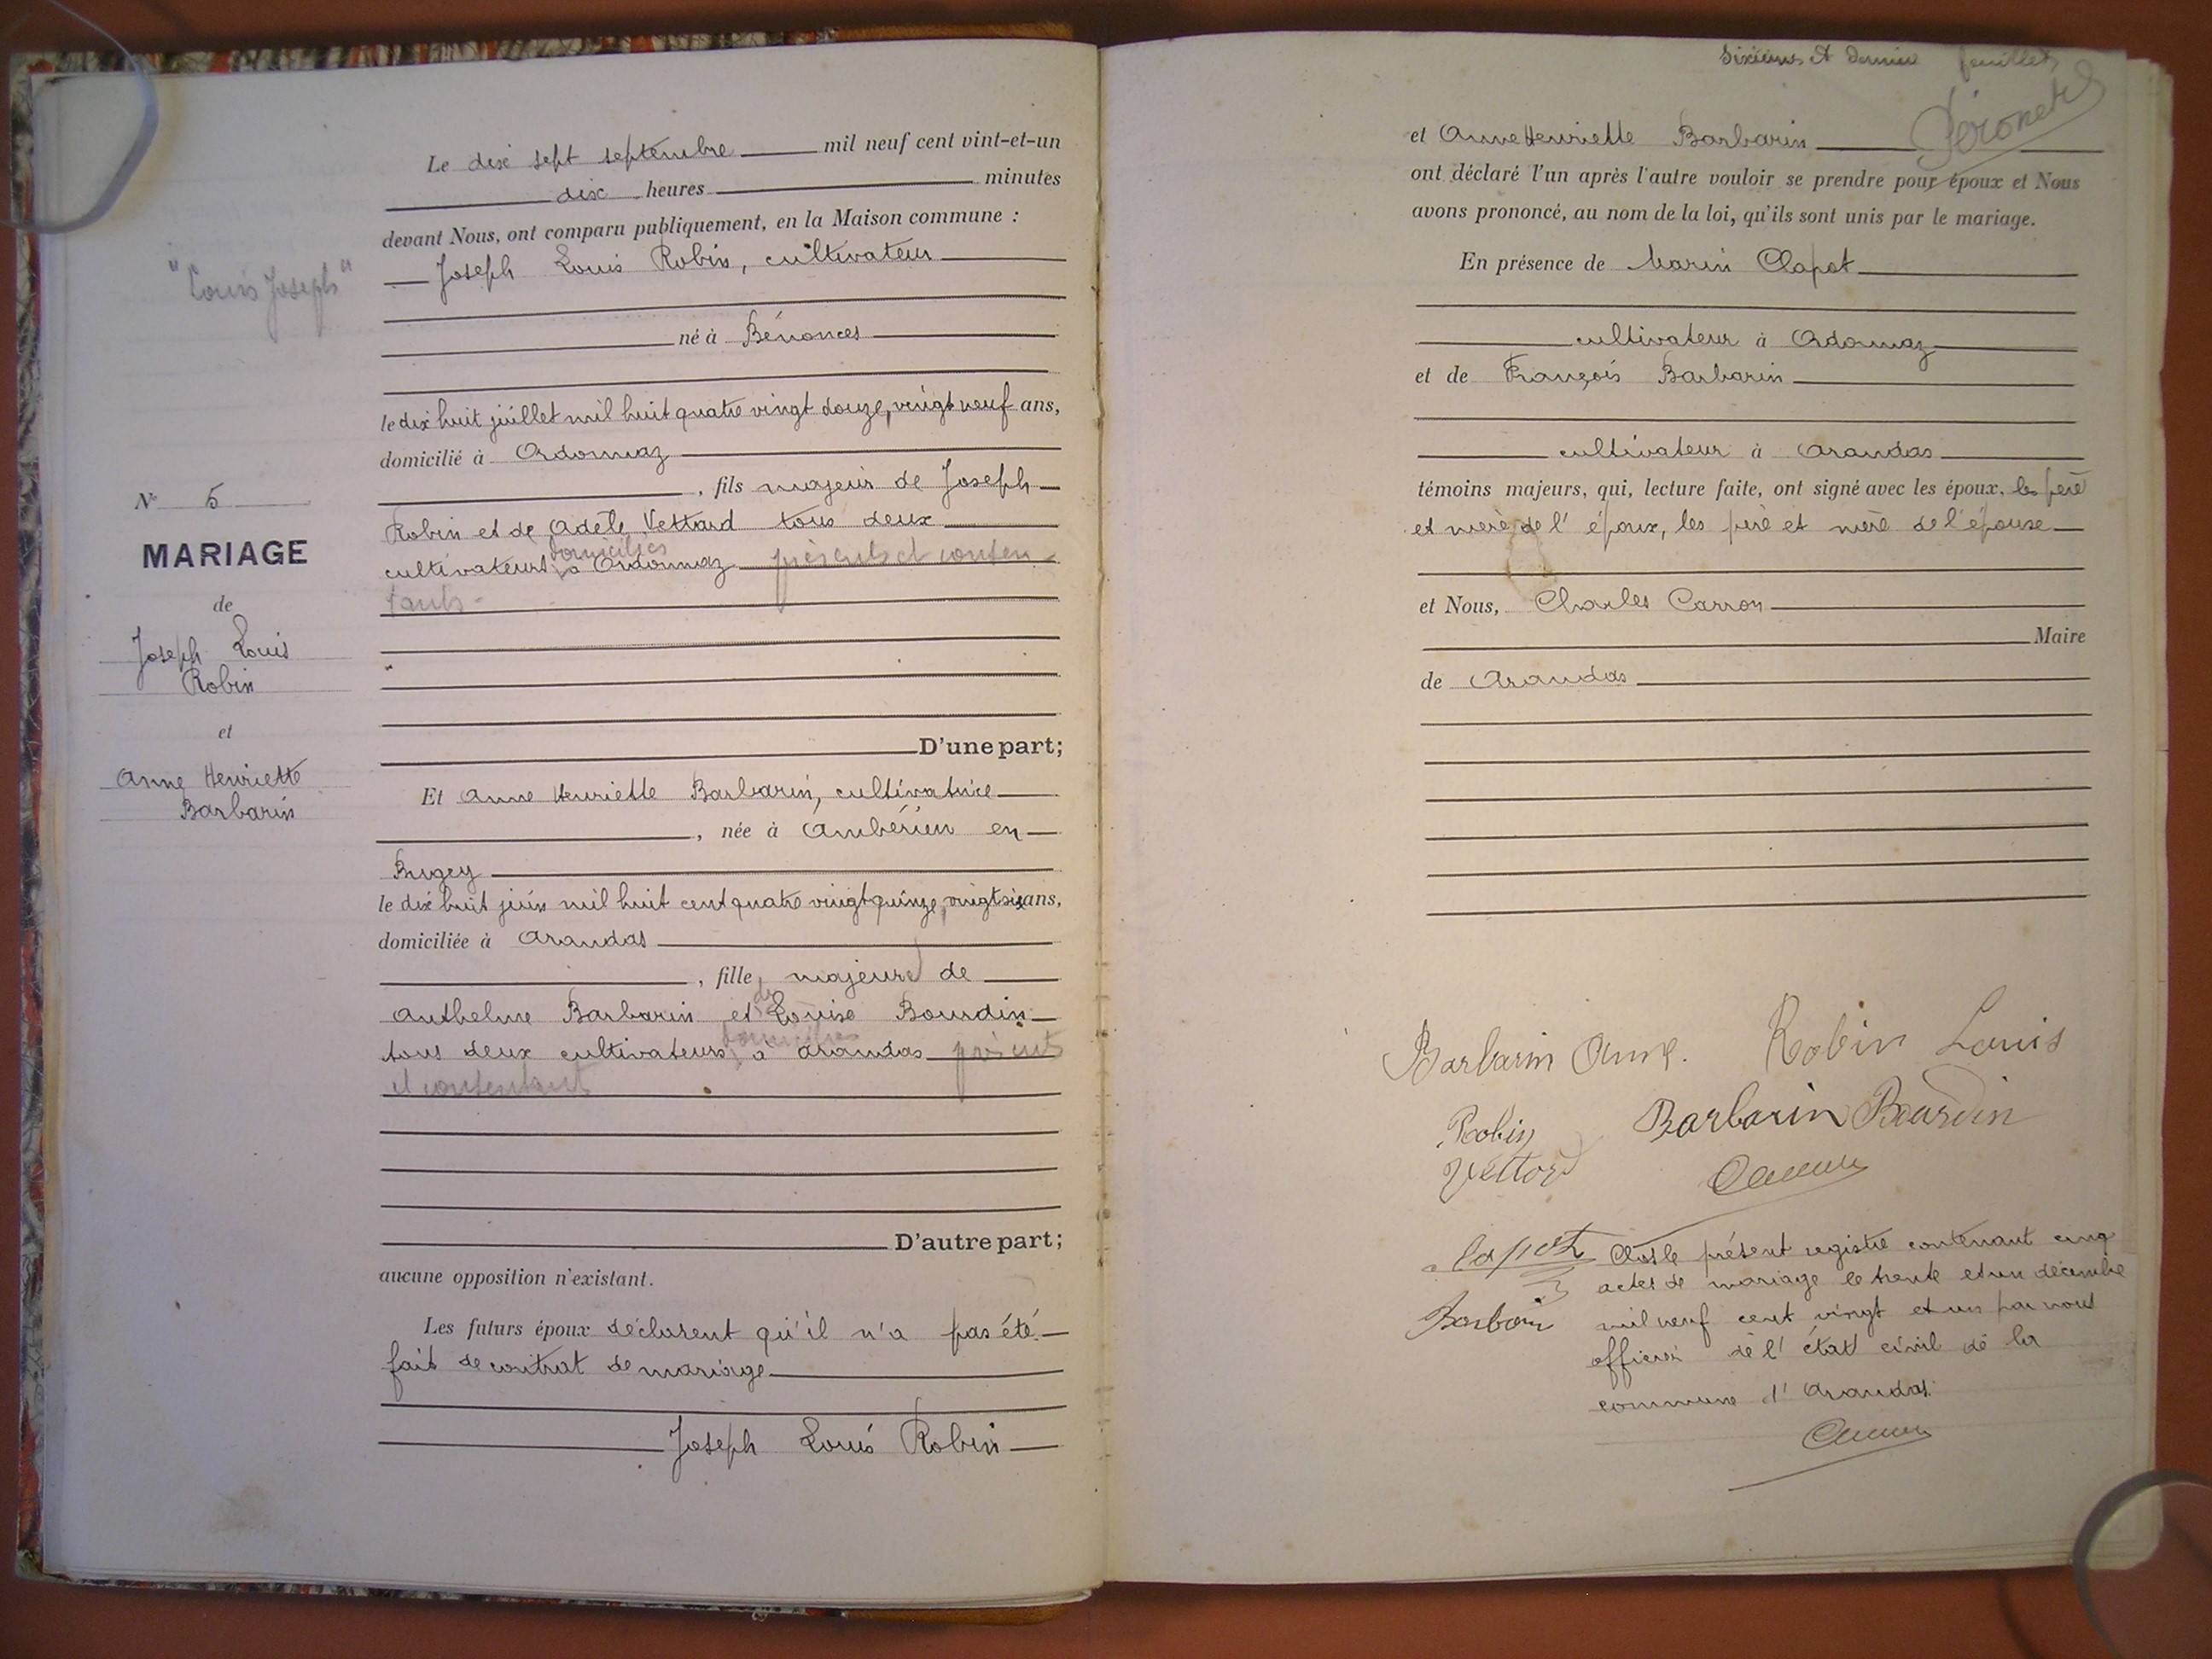 "Louis Joseph"
N° 5
MARIAGE
de
Joseph Louis
Robin
et
Anne Henriette
Barbarin
Le dix sept septembre mil neuf cent vint-et-un
dix heures minutes
devant Nous, ont comparu publiquement, en la Maison commune :
Joseph Louis Robin, cultivateur
né à Bénonces
le dix huit juillet mil huit quatre vingt douze, vingt neuf ans,
domicilié à Ordonnaz
, fils majeur de Joseph
Robin et de Adèle Vettard tous deux
cultivateurs domiciliés à Ordonnaz présents et consen
tants
D'une part;
Et Anne Henriette Barbarin, cultivatrice
, née à Ambérieu en
Bugey
le dix huit juin mil huit cent quatre vingt quinze, vingt six ans,
domiciliée à Arandas
, fille majeure de
Anthelme Barbarin et de Louise Bourdin
tous deux cultivateurs domiciliés à Arandas présents
et consentant
D'autre part;
aucune opposition n'existant.
Les futurs époux déclarent qu'il n'a pas été
fait de contrat de mariage
Joseph Louis Robin
Sixième et dernier feuillet
et Anne Henriette Barbarin
ont déclaré l'un après l'autre vouloir se prendre pour époux et Nous
avons prononcé, au nom de la loi, qu'ils sont unis par le mariage.
En présence de Marin Clapot
cultivateur à Ordonnaz
et de François Barbarin
cultivateur à Arandas
témoins majeurs, qui, lecture faite, ont signé avec les époux, les père
et mère de l'époux, les père et mère de l'épouse
et Nous, Charles Carron
Maire
de Arandas
Barbarin Anne. Robin Louis
Robin Barbarin Bourdin
Vettard
Clapot
Barbarin
Clos le présent registre contenant cinq
actes de mariage le trente et un décembre
mil neuf cent vingt et un par nous
officier de l'état civil de la
commune d'Arandas